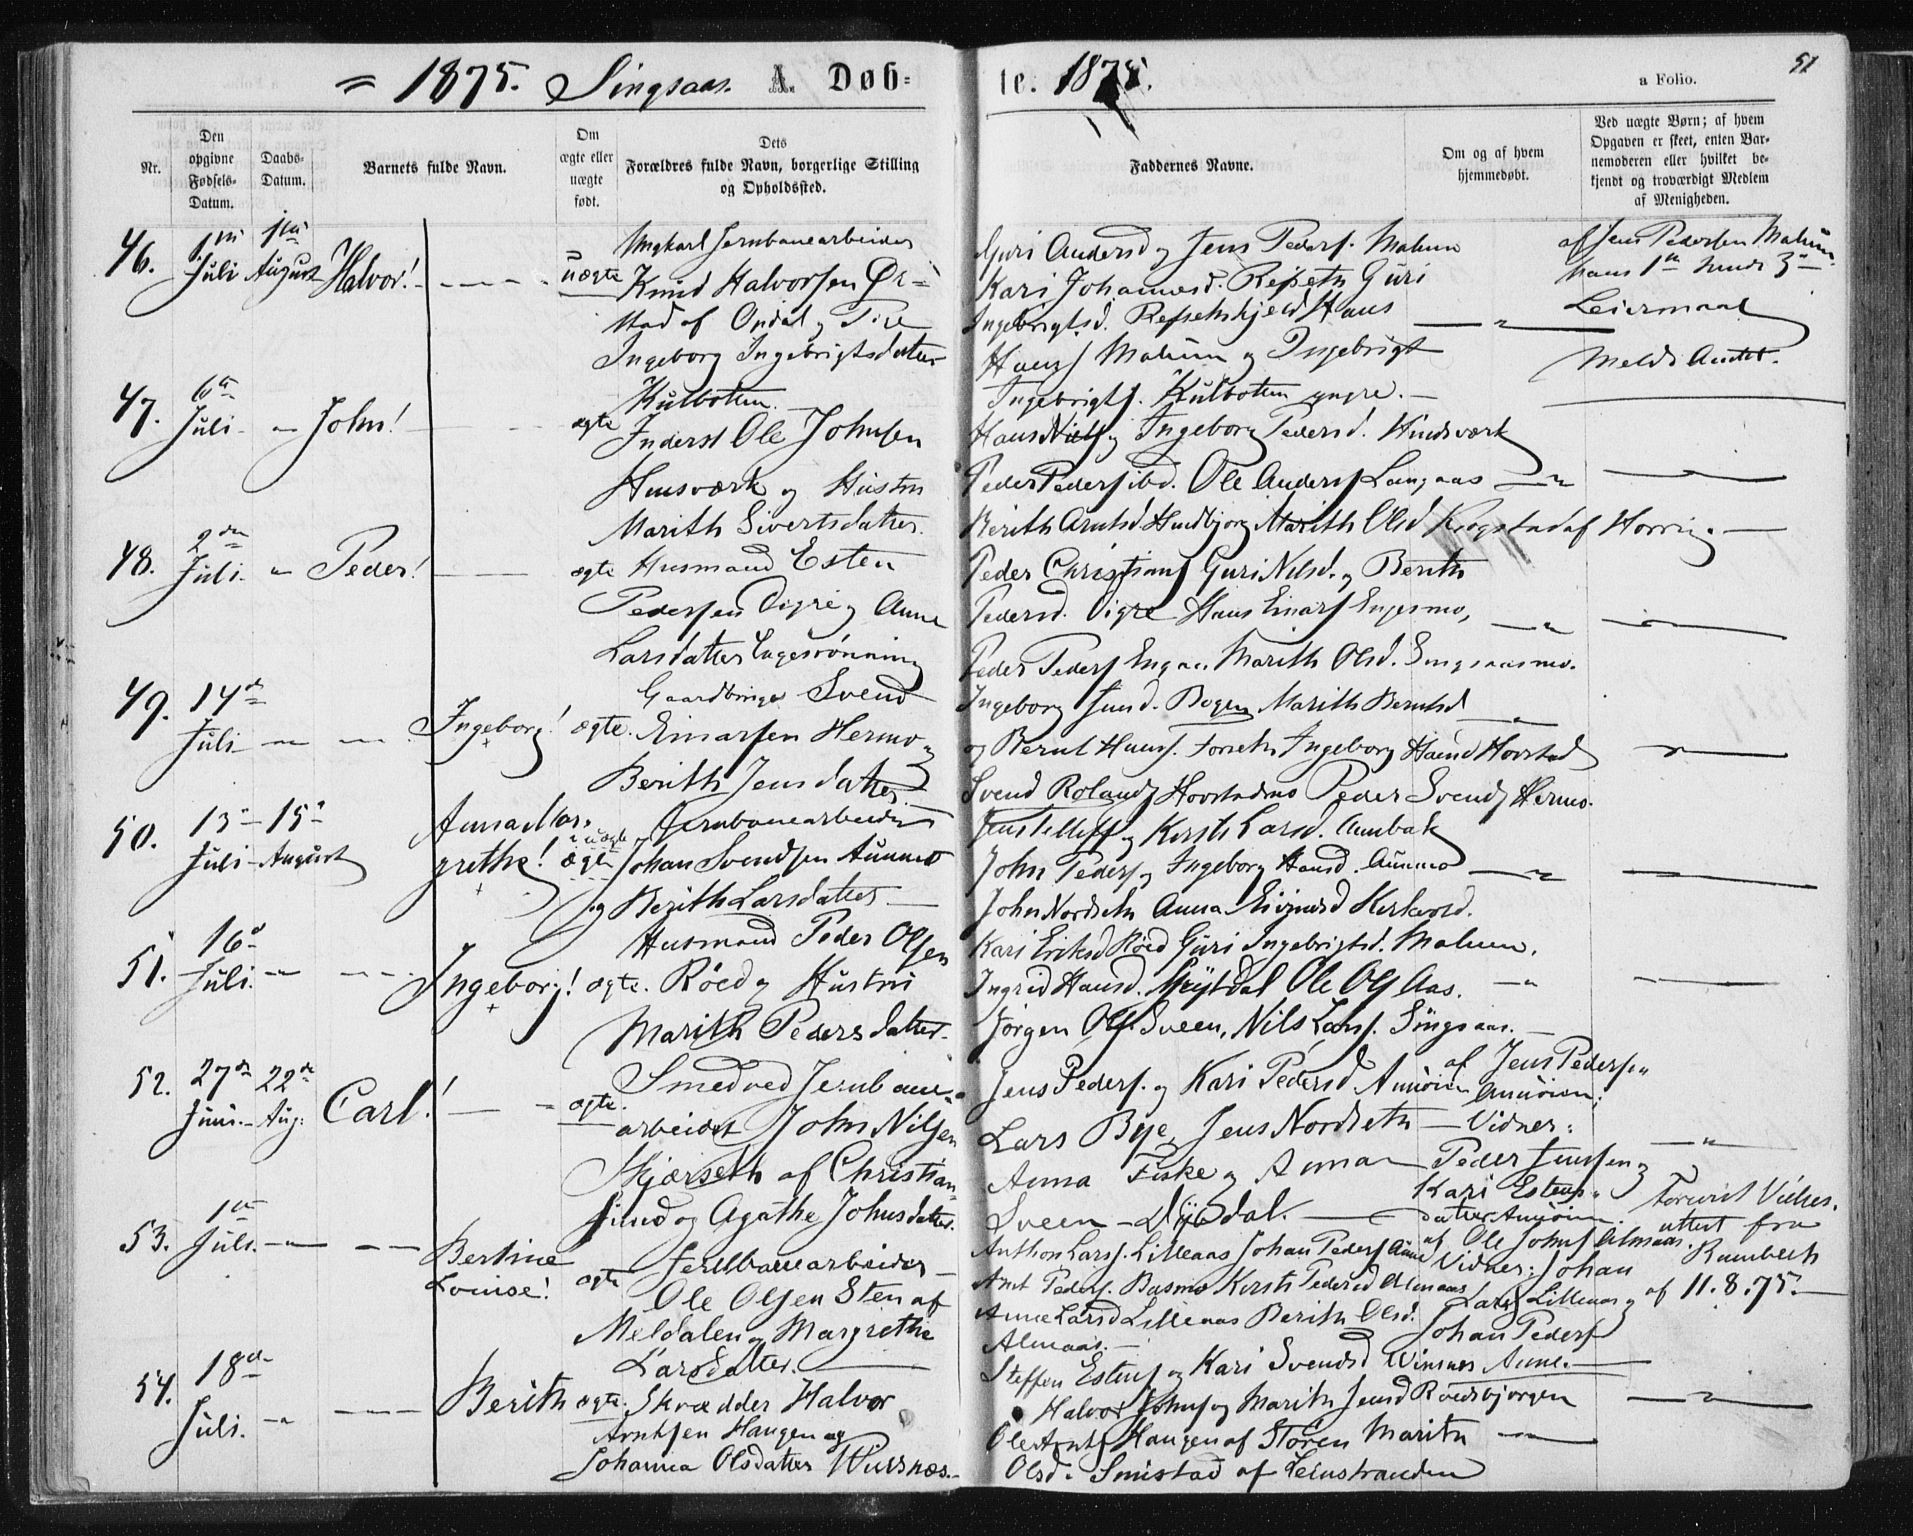 = 1875. Singsaas. A. Døb=
te. 1875. a Folio. 51
Nr.
Den opgivne Fødsels-Datum.
Daabs-Datum.
Barnets fulde Navn.
Om ægte eller uægte født.
Dets Forældres fulde Navn, borgerlige Stilling og Opholdssted.
Faddernes Navne.
Om og af hvem hjemmedøbt.
Ved uægte Børn; af hvem Opgaven er skeet, enten Barnemoderen eller hvilket bekjendt og troværdigt Medlem af Menigheden.
46. 1ste Juli 1ste August Halvor! uægte
Ungkarl Jernbanearbeider
Knud Halvorsen
stad af Opdal og Pige
Ingeborg Ingebrigtsdatter
Kulbotten.
Guri Andersd og Jens Peders. Malum
Kari Johannesd. Refseth Guri
Ingebrigtsd. Refsethkjeld Hans
Hansf Malum og Ingebrigt
Ingebrigtf. Kulbotten yngre.
af Jens Pedersen Malum.
hans 1ste hends 3die
Leiermaal
47. 6te Juli John! ægte
Inderst Ole Johnsen
Hinsværk og Hustru
Marith Sivertsdatter
Hans Nilsf og Ingeborg Pedersd. Hinsværk
Peder Pedersf ibd. Ole Andersf Langaas
Berith Arntsd Hindbjorg Marith Olsd Krogstad af Horrig.
48. 2den Juli Peder! ægte
Husmand Esten
Pedersen Digre og Anne
Larsdatter Engesrønning
Peder Christiansf Guri Nilsd. og Berith
Pedersd. Digre Hans Einarsf Engesmo,
Peder Pedersf Engaa. Marith Olsd. Singsaasmo.
49. 14de Juli Ingeborg! ægte.
Gaardbruger Svend
Einarsen Hermo og
Berith Jensdatter
Ingeborg Jensd. Bogen Marith Berntsd
og Bernt Hansf. Forseth Ingeborg Hansd Hovstad
Svend Rolandf Hovstadmo Peder Svendf Hermo.
50. 13de Juli 15de August Anna Margrethe! uægte ægte
Jernbanearbeider
Johan Svendsen Aunmo
og Berith Larsdatter
Jens Tellefsf og Kirsti Larsd. Aunbak
John Pedersf og Ingeborg Hansd. Aunmo
John Nordseth Anna Kirkvold.
51. 16de Juli. Ingeborg! ægte.
Husmand Peder Olsen
Røed og Hustru
Marith Pedersdatter.
Kari Eriksd Røed Guri Ingebrigtsd. Malum.
Ingrid Hansd. Ole Olsf Aas.
Jørgen Olsf. Sveen, Nils Larsf. Singsaas.
52. 27de Juni. 22de Aug. Carl! ægte.
Smed ved Jernbane-
arbeidet John Nilsen
Skjærseth af Christian-
sund og Agathe Johnsdatter.
Jens Pedersf. og Kari Pedersd Aunøien
Lars Bye, Jens Nordseth
Anna Fiske og Anna
Sveen - Dyrdal.
af Jens Pedersen
Aunøien.
Vidner:
Peder Jensen og
Kari Estens-
datter Aunøien.
53. 1ste Juli. Bertine Louise! ægte
Jernbanearbeider
Ole Olsen Sten af
Meldalen og Margrethe
Larsdatter.
Anthon Larsf. Lilleaas Johan Pedersf Aune
Arnt Pedersf. Busmo Kirsti Pedersd Almaas
Anne Larsd Lilleaas Berith Olsd.
Almaas.
af Ole Johnsf Almaas.
Vidner: Johan
Larsf Lilleaas og
Johan Pedersf
Aune.
Forevist Vielses-
attest fra
af 11.8.75.
54. 18de Juli. Berith ægte.
Skrædder Halvor
Arntsen Haugen og
Johanna Olsdatter Winsnæs.
Steffen Estensf og Kari Svendsd Winsnes
Halvor Johnsf og Marith Jensd Roedsbjørgen
Ole Arntsf Haugen af Støren Marith
Olsd. Smistad af Leinstranden